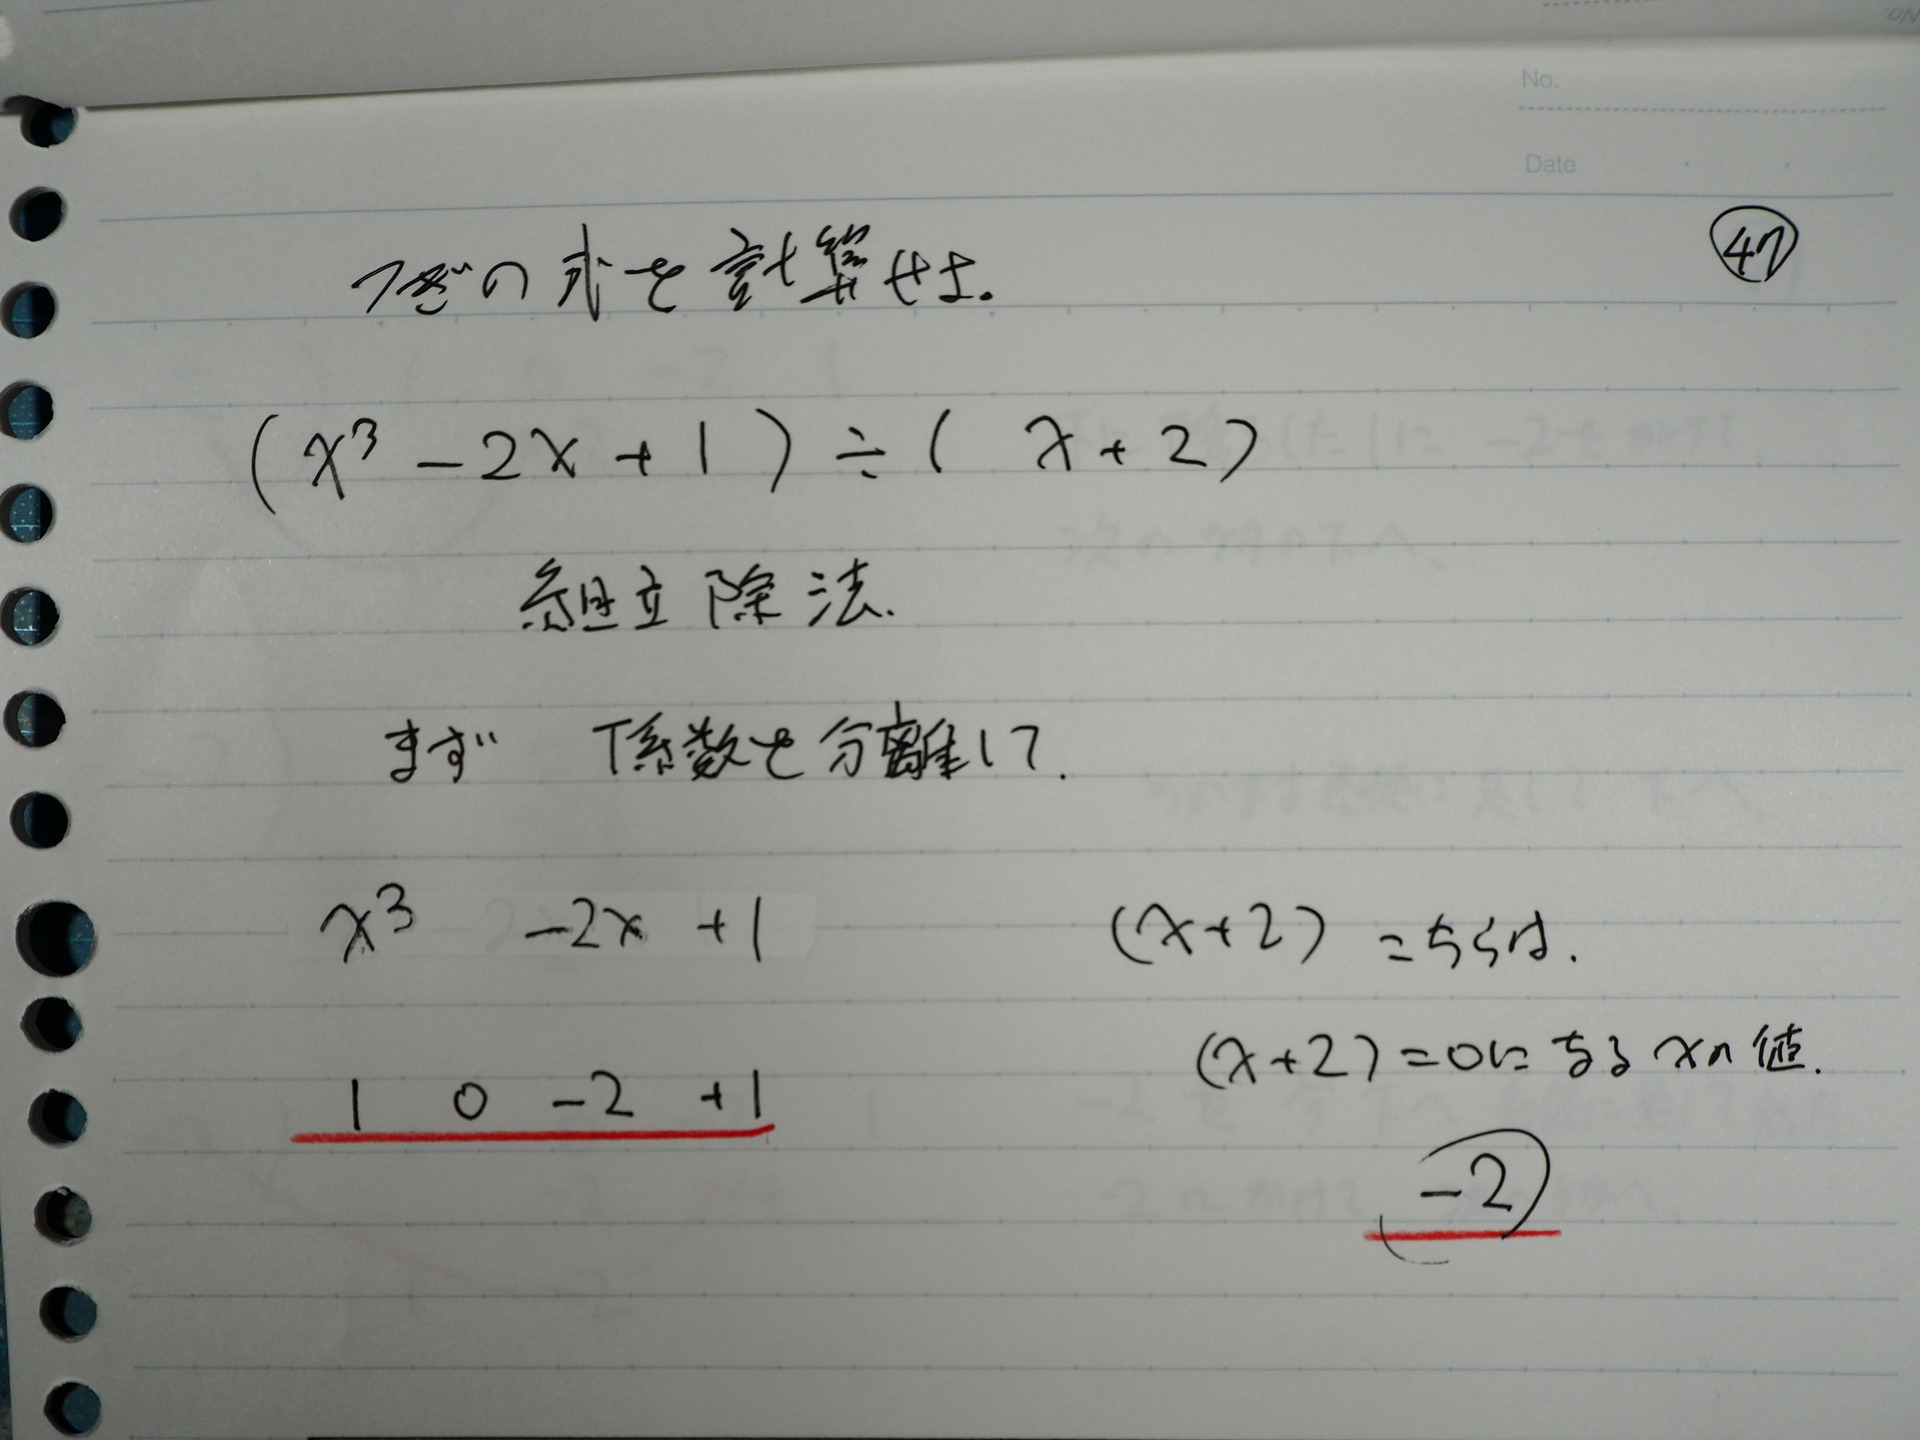 No.
Date
㊼
つぎの式を計算せよ.
(x³ - 2x + 1) ÷ ( x + 2)
組立除法.
まず 係数を分離して.
x³ -2x +1
(x+2) こちらは.
(x+2) = 0になる xの値.
1 0 -2 +1
-2